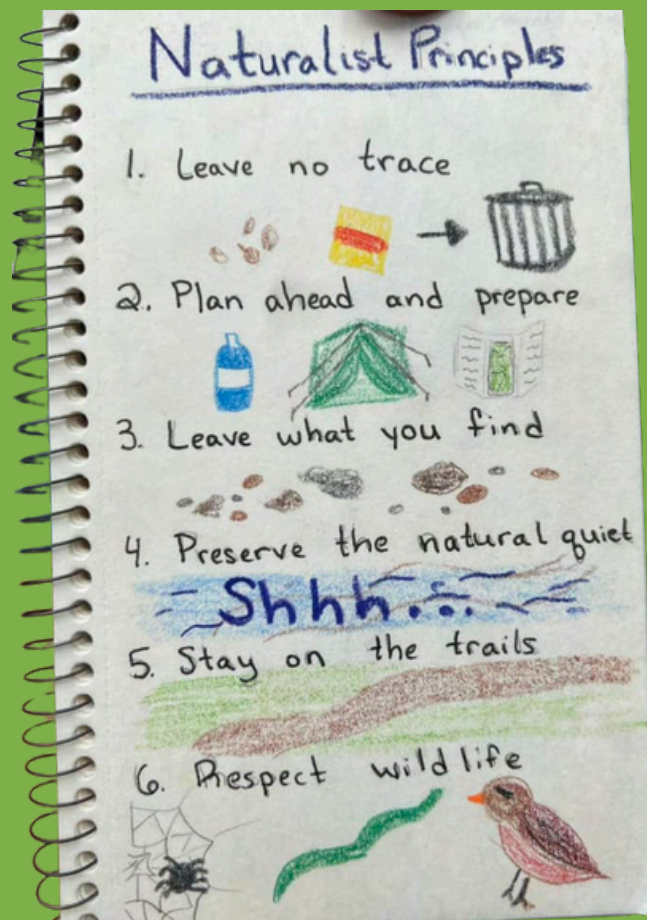 Naturalist Principles
1. Leave no trace
2. Plan ahead and prepare
3. Leave what you find
4. Preserve the natural quiet
Shhh...
5. Stay on the trails
6. Respect wildlife